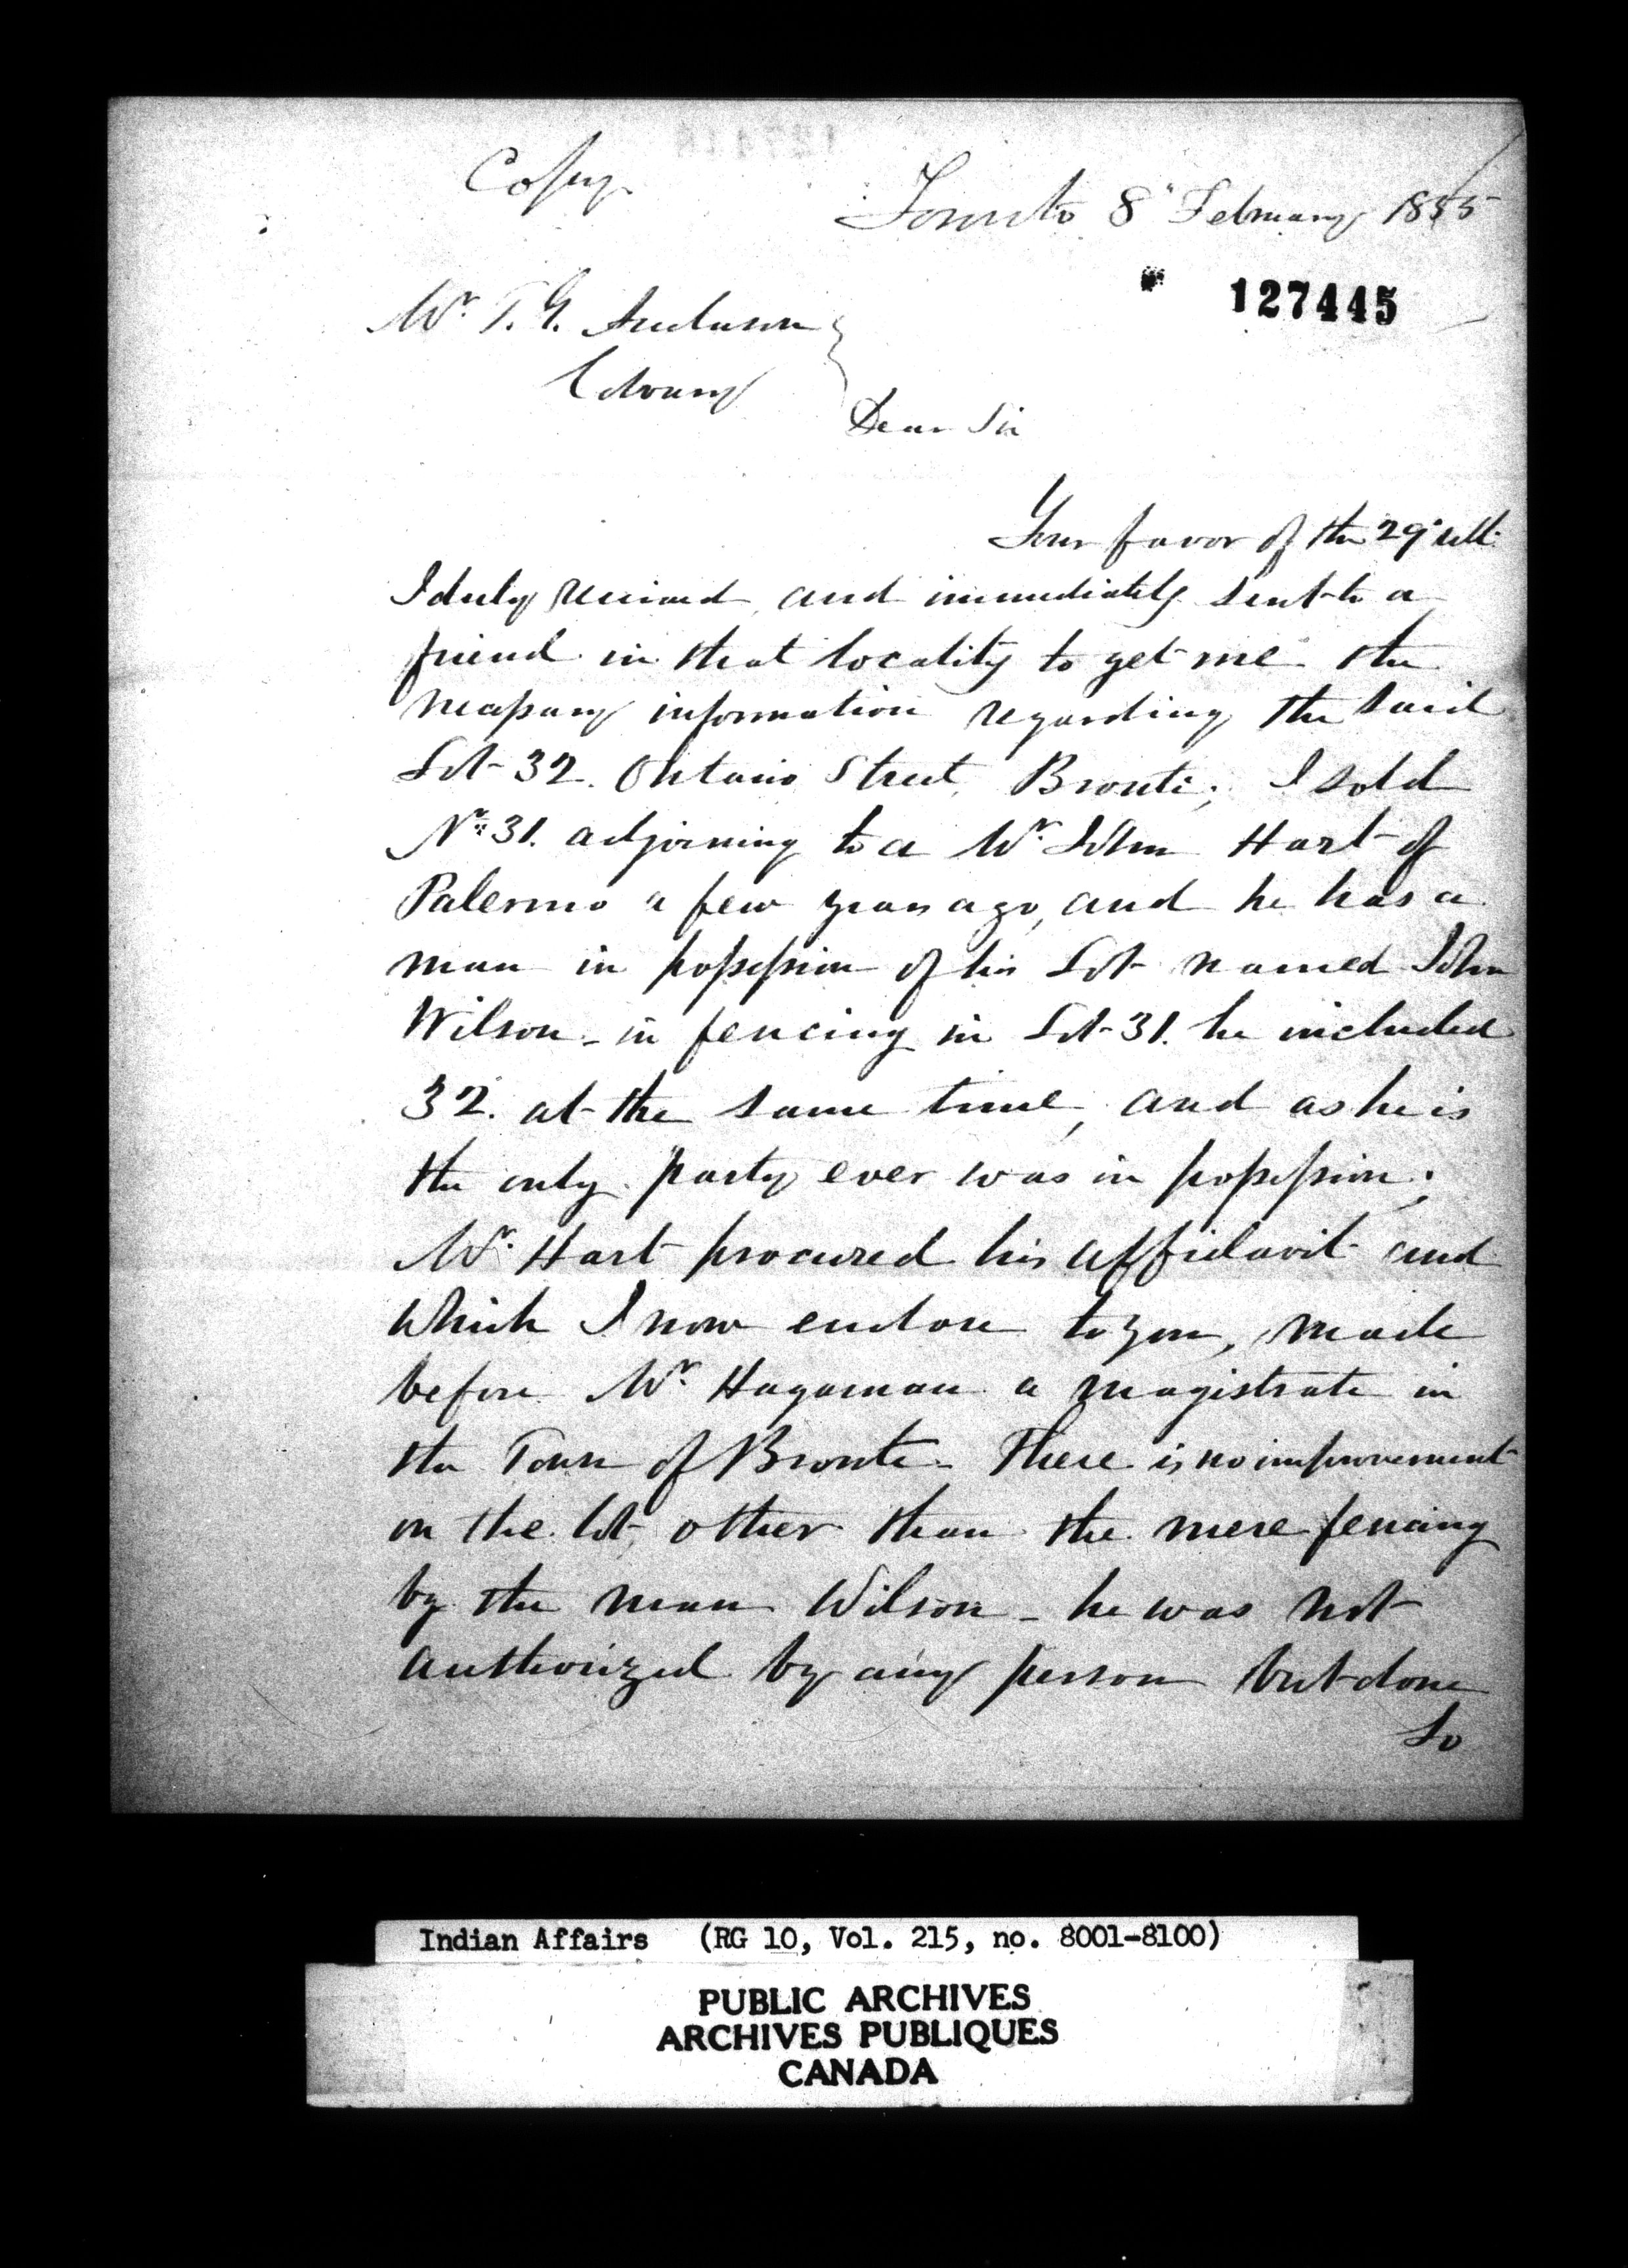 Copy
Toronto 8" February 1855
127445
Mr. T. G. Anderson
Cobourg
Dear Sir
Your favor of the 29" ult:
I duly received, and immediately sent to a
friend in that locality to get me the
necessary information regarding the said
Lot 32. Ontario Street, Bronte; I sold
No. 31. adjoining to a Mr. John Hart of
Palermo a few years ago, and he has a
man in possession of his Lot named John
Wilson - in fencing in Lot 31. he included
32. at the same time, and as he is
the only party ever was in possession;
Mr. Hart procured his affidavit and
which I now enclose to you, made
before Mr. Hagaman a magistrate in
the Town of Bronte - There is no improvement
on the lot, other than the mere fencing
by the man Wilson - he was not
authorized by any person but done
so
Indian Affairs (RG 10, Vol. 215, no. 8001-8100)
PUBLIC ARCHIVES
ARCHIVES PUBLIQUES
CANADA